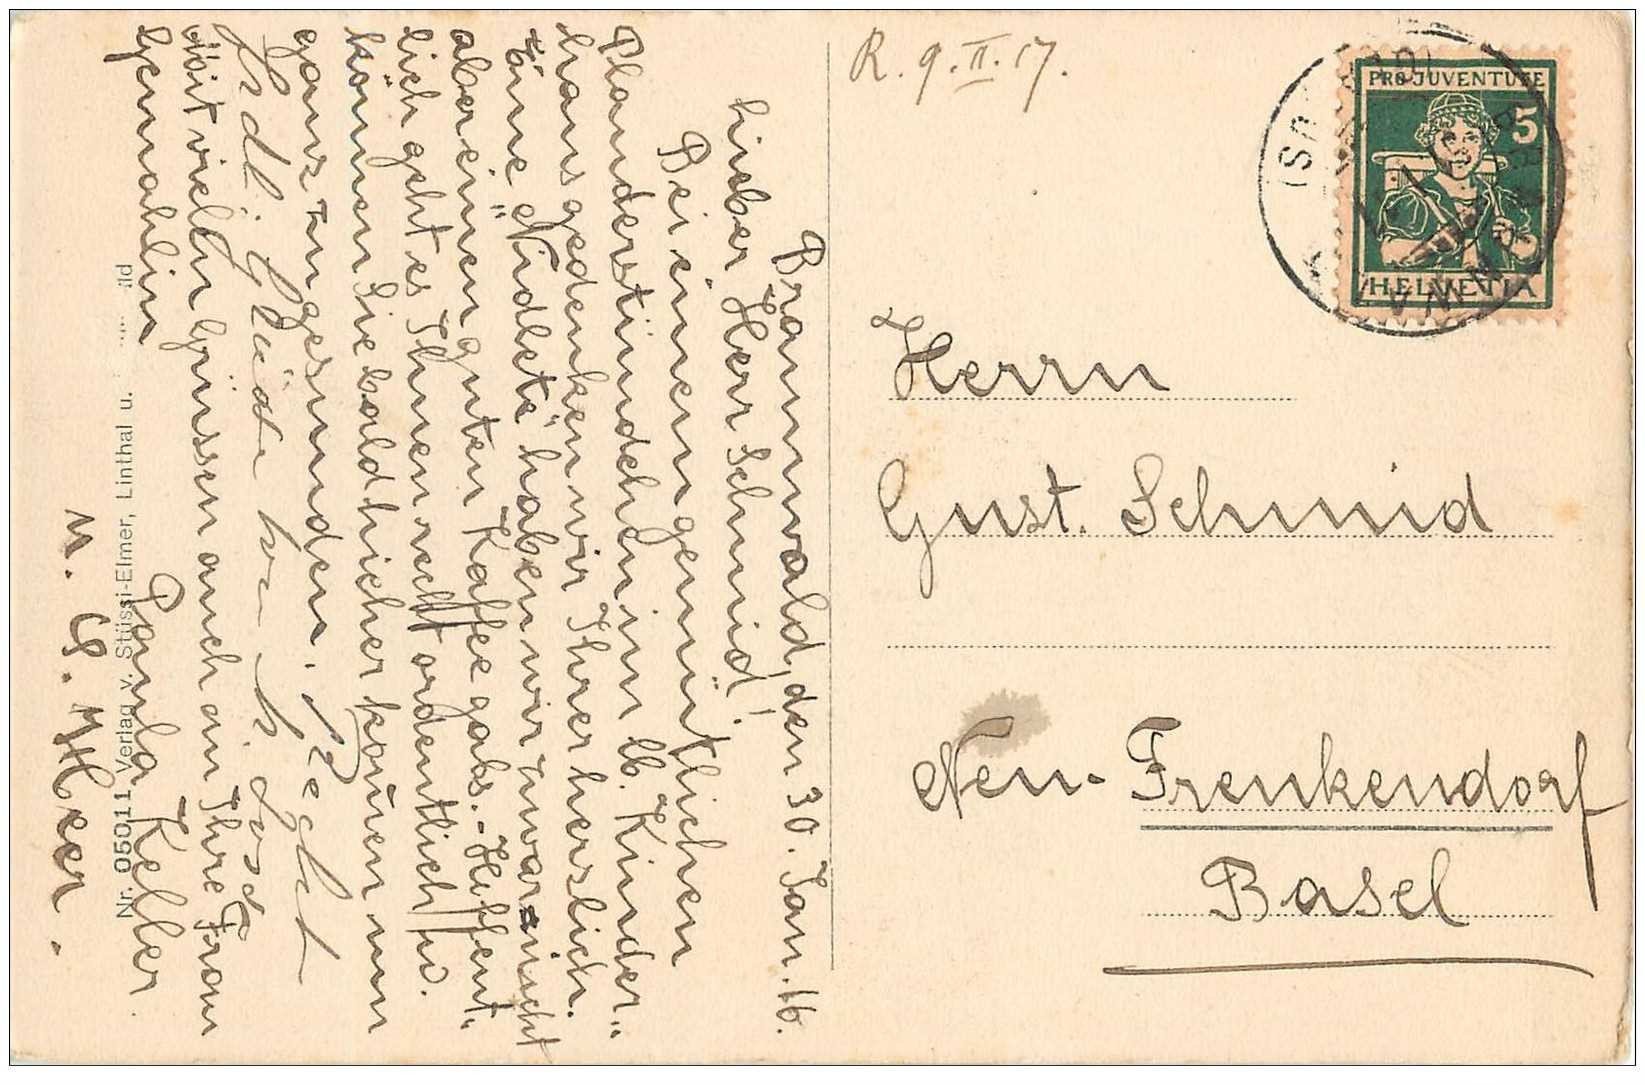 Braunwald, den 30. Jan. 16.
Lieber Herr Schmid!
Bei einem gemütlichen
Plauderstündchen im lb. Kinder-
haus gedenken wir Ihrer herzlich.
Eine "Nidlete" haben wir zwar nicht
aber einen guten Kaffee gabs. - Hoffent-
lich geht es Ihnen recht ordentlich u.
können Sie bald hieher kommen um
ganz zu gesunden. Recht
Mit vielen Grüssen auch an Ihre Frau
Gemahlin
Paula Keller
Nr. 05011 Verlag v. Stüssi-Elmer, Linthal u.
R. 9. II. 17.
PRO JUVENTUTE
5
HELVETIA
Herrn
Gust. Schmid
Neu-Frenkendorf
Basel